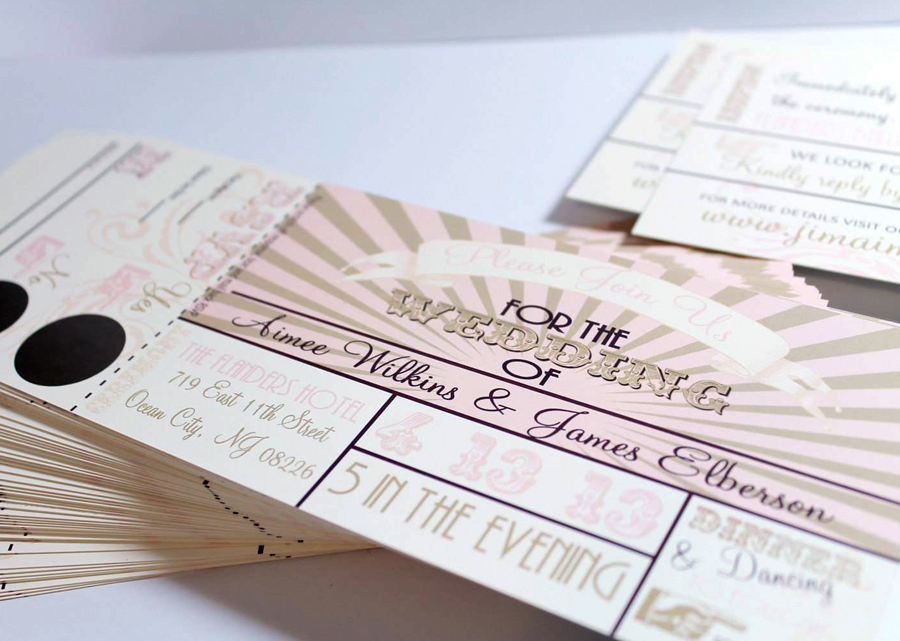 Please Join Us
FOR THE
WEDDING
OF
Aimee Wilkins & James Elberson
THE FLANDERS HOTEL
719 East 11th Street
Ocean City, NJ 08226
4 13 13
5 IN THE EVENING
DINNER
& Dancing
RSVP
Yes
No
Immediately
the ceremony
WE LOOK FO
Kindly reply by
FOR MORE DETAILS VISIT O
www.jimaim